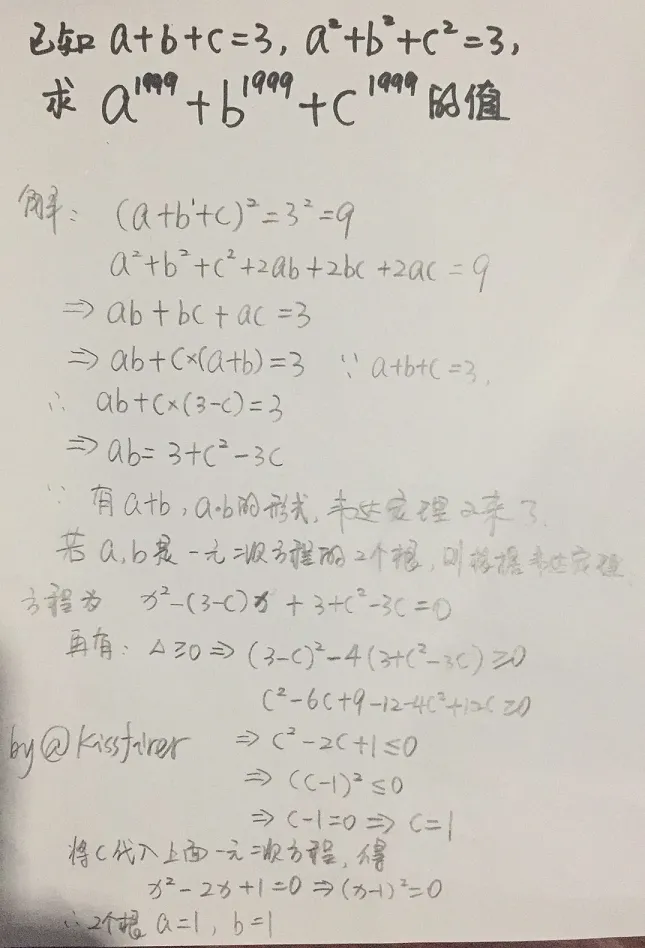 已知 a+b+c=3, a²+b²+c²=3,
求 a¹⁹⁹⁹+b¹⁹⁹⁹+c¹⁹⁹⁹的值
解: (a+b+c)²=3²=9
a²+b²+c²+2ab+2bc+2ac=9
⇒ab+bc+ac=3
⇒ab+c×(a+b)=3 ∵a+b+c=3,
∴ ab+c×(3-c)=3
⇒ab=3+c²-3c
∵ 有a+b, a·b的形式, 韦达定理又来了.
若a,b是一元二次方程的2个根, 则根据韦达定理,
方程为 x²-(3-c)x+3+c²-3c=0
再有: △≥0⇒(3-c)²-4(3+c²-3c)≥0
c²-6c+9-12-4c²+12c≥0
by@Kissfairer ⇒c²-2c+1≤0
⇒(c-1)²≤0
⇒c-1=0⇒c=1
将c代入上面一元二次方程, 得
x²-2x+1=0⇒(x-1)²=0
∴2个根 a=1, b=1